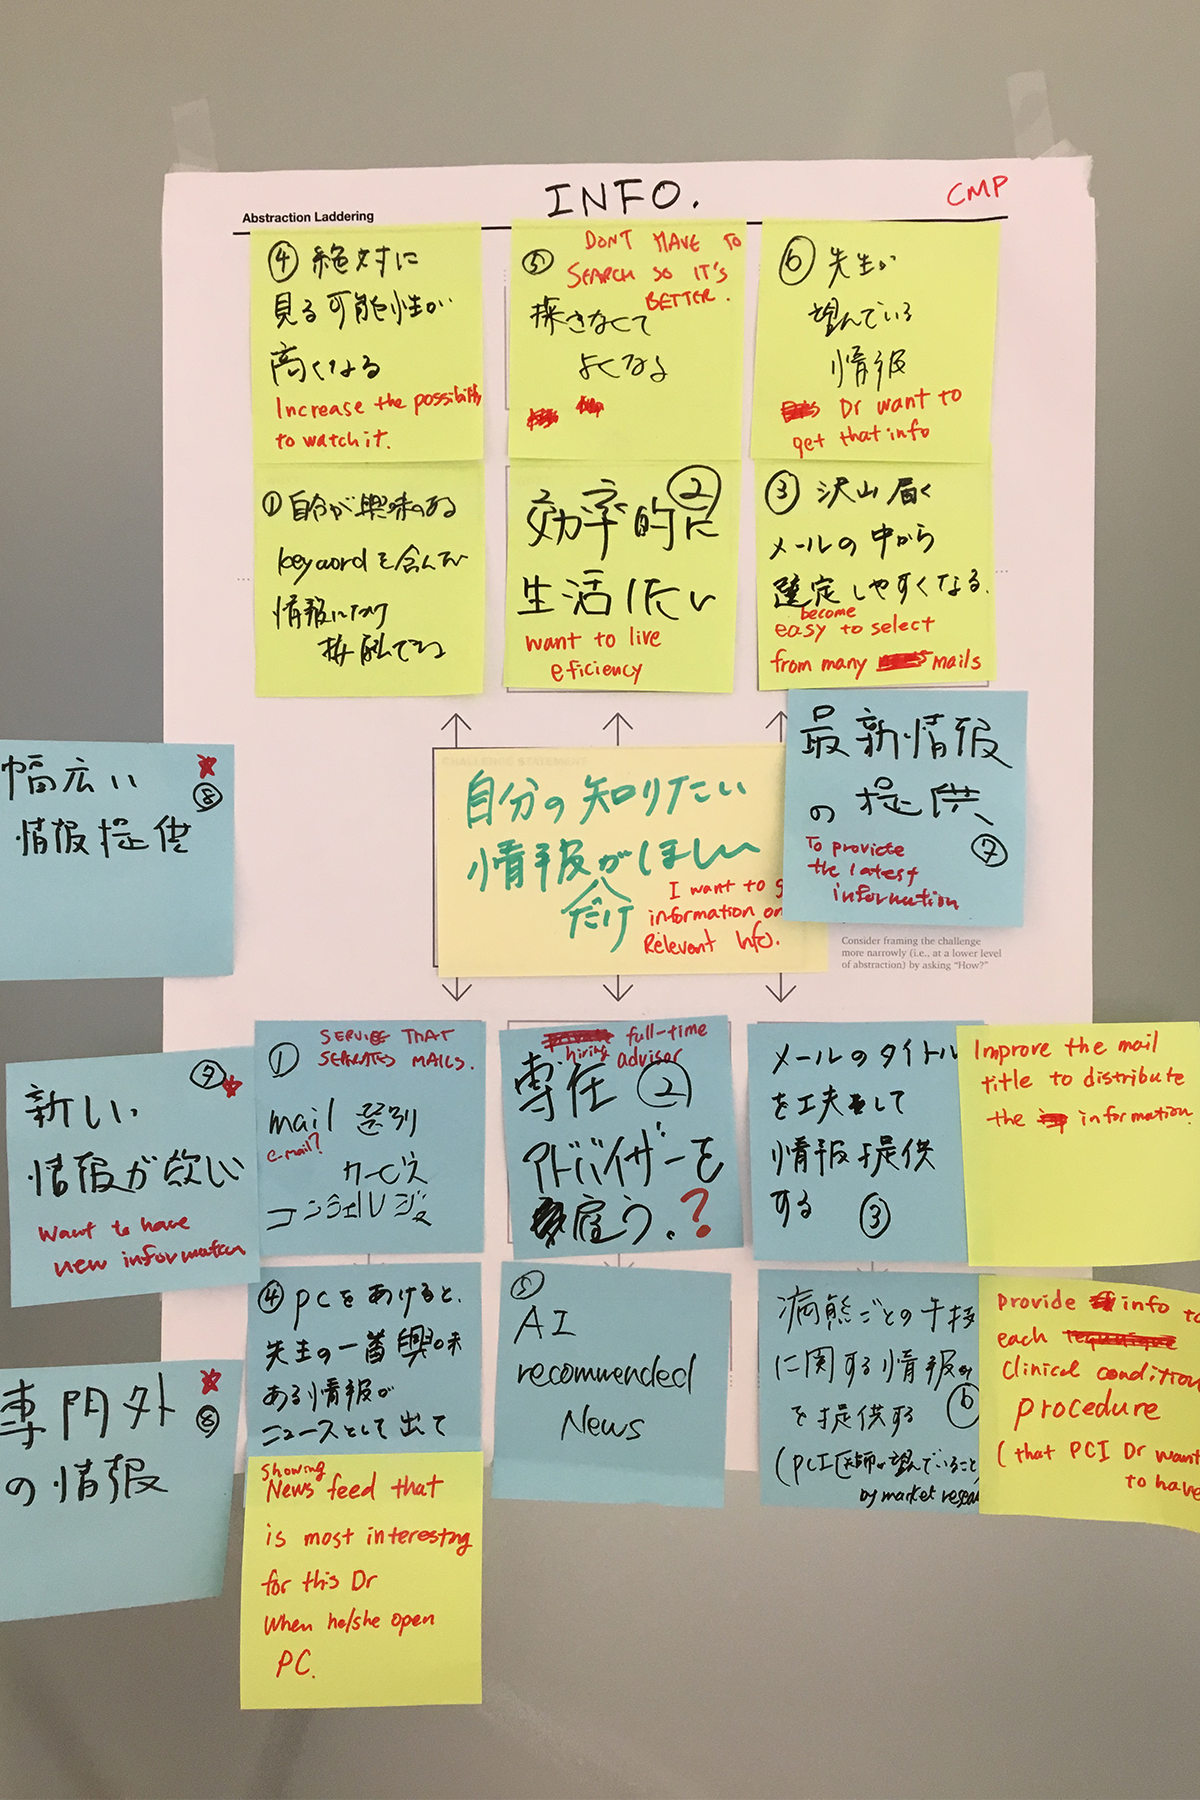 Abstraction Laddering
INFO.
CMP
④ 絶対に
見る可能性が
高くなる
Increase the possibility
to watch it.
⑤
DON'T HAVE TO
SEARCH SO IT'S
BETTER.
探さなくて
よくなる
⑥ 先生が
望んでいる
情報
Dr want to
get that info
① 自分が興味のある
keywordを含んだ
情報にだけ
接触できる
②
効率的に
生活したい
want to live
eficiency
③ 沢山届く
メールの中から
選定しやすくなる.
become
easy to select
from many mails
最新情報
の提供
⑦
To provide
the latest
information
CHALLENGE STATEMENT
自分の知りたい
情報がほしい
だけ
I want to g
information on
Relevant Info.
Consider framing the challenge
more narrowly (i.e., at a lower level
of abstraction) by asking “How?”
幅広い
⑧
情報提供
⑨
新しい
情報が欲しい
Want to have
new information
専門外
⑧
の情報
①
SERVICE THAT
SEPARATES MAILS.
mail 選別
e-mail?
サービス
コンシェルジュ
full-time
hiring advisor
専任 ②
アドバイザーを
雇う.?
メールのタイトル
を工夫をして
情報提供
する ③
Improve the mail
title to distribute
the information
④ PCをあけると、
先生の一番興味
ある情報が
ニュースとして出て
showing
News feed that
is most interesting
for this Dr
When he/she open
PC.
⑤
AI
recommended
News
病態ごとの手技
に関する情報
を提供する ⑥
(PCI医師が望んでいること)
by market resea
provide info to
each
clinical condition
procedure
(that PCI Dr want
to have